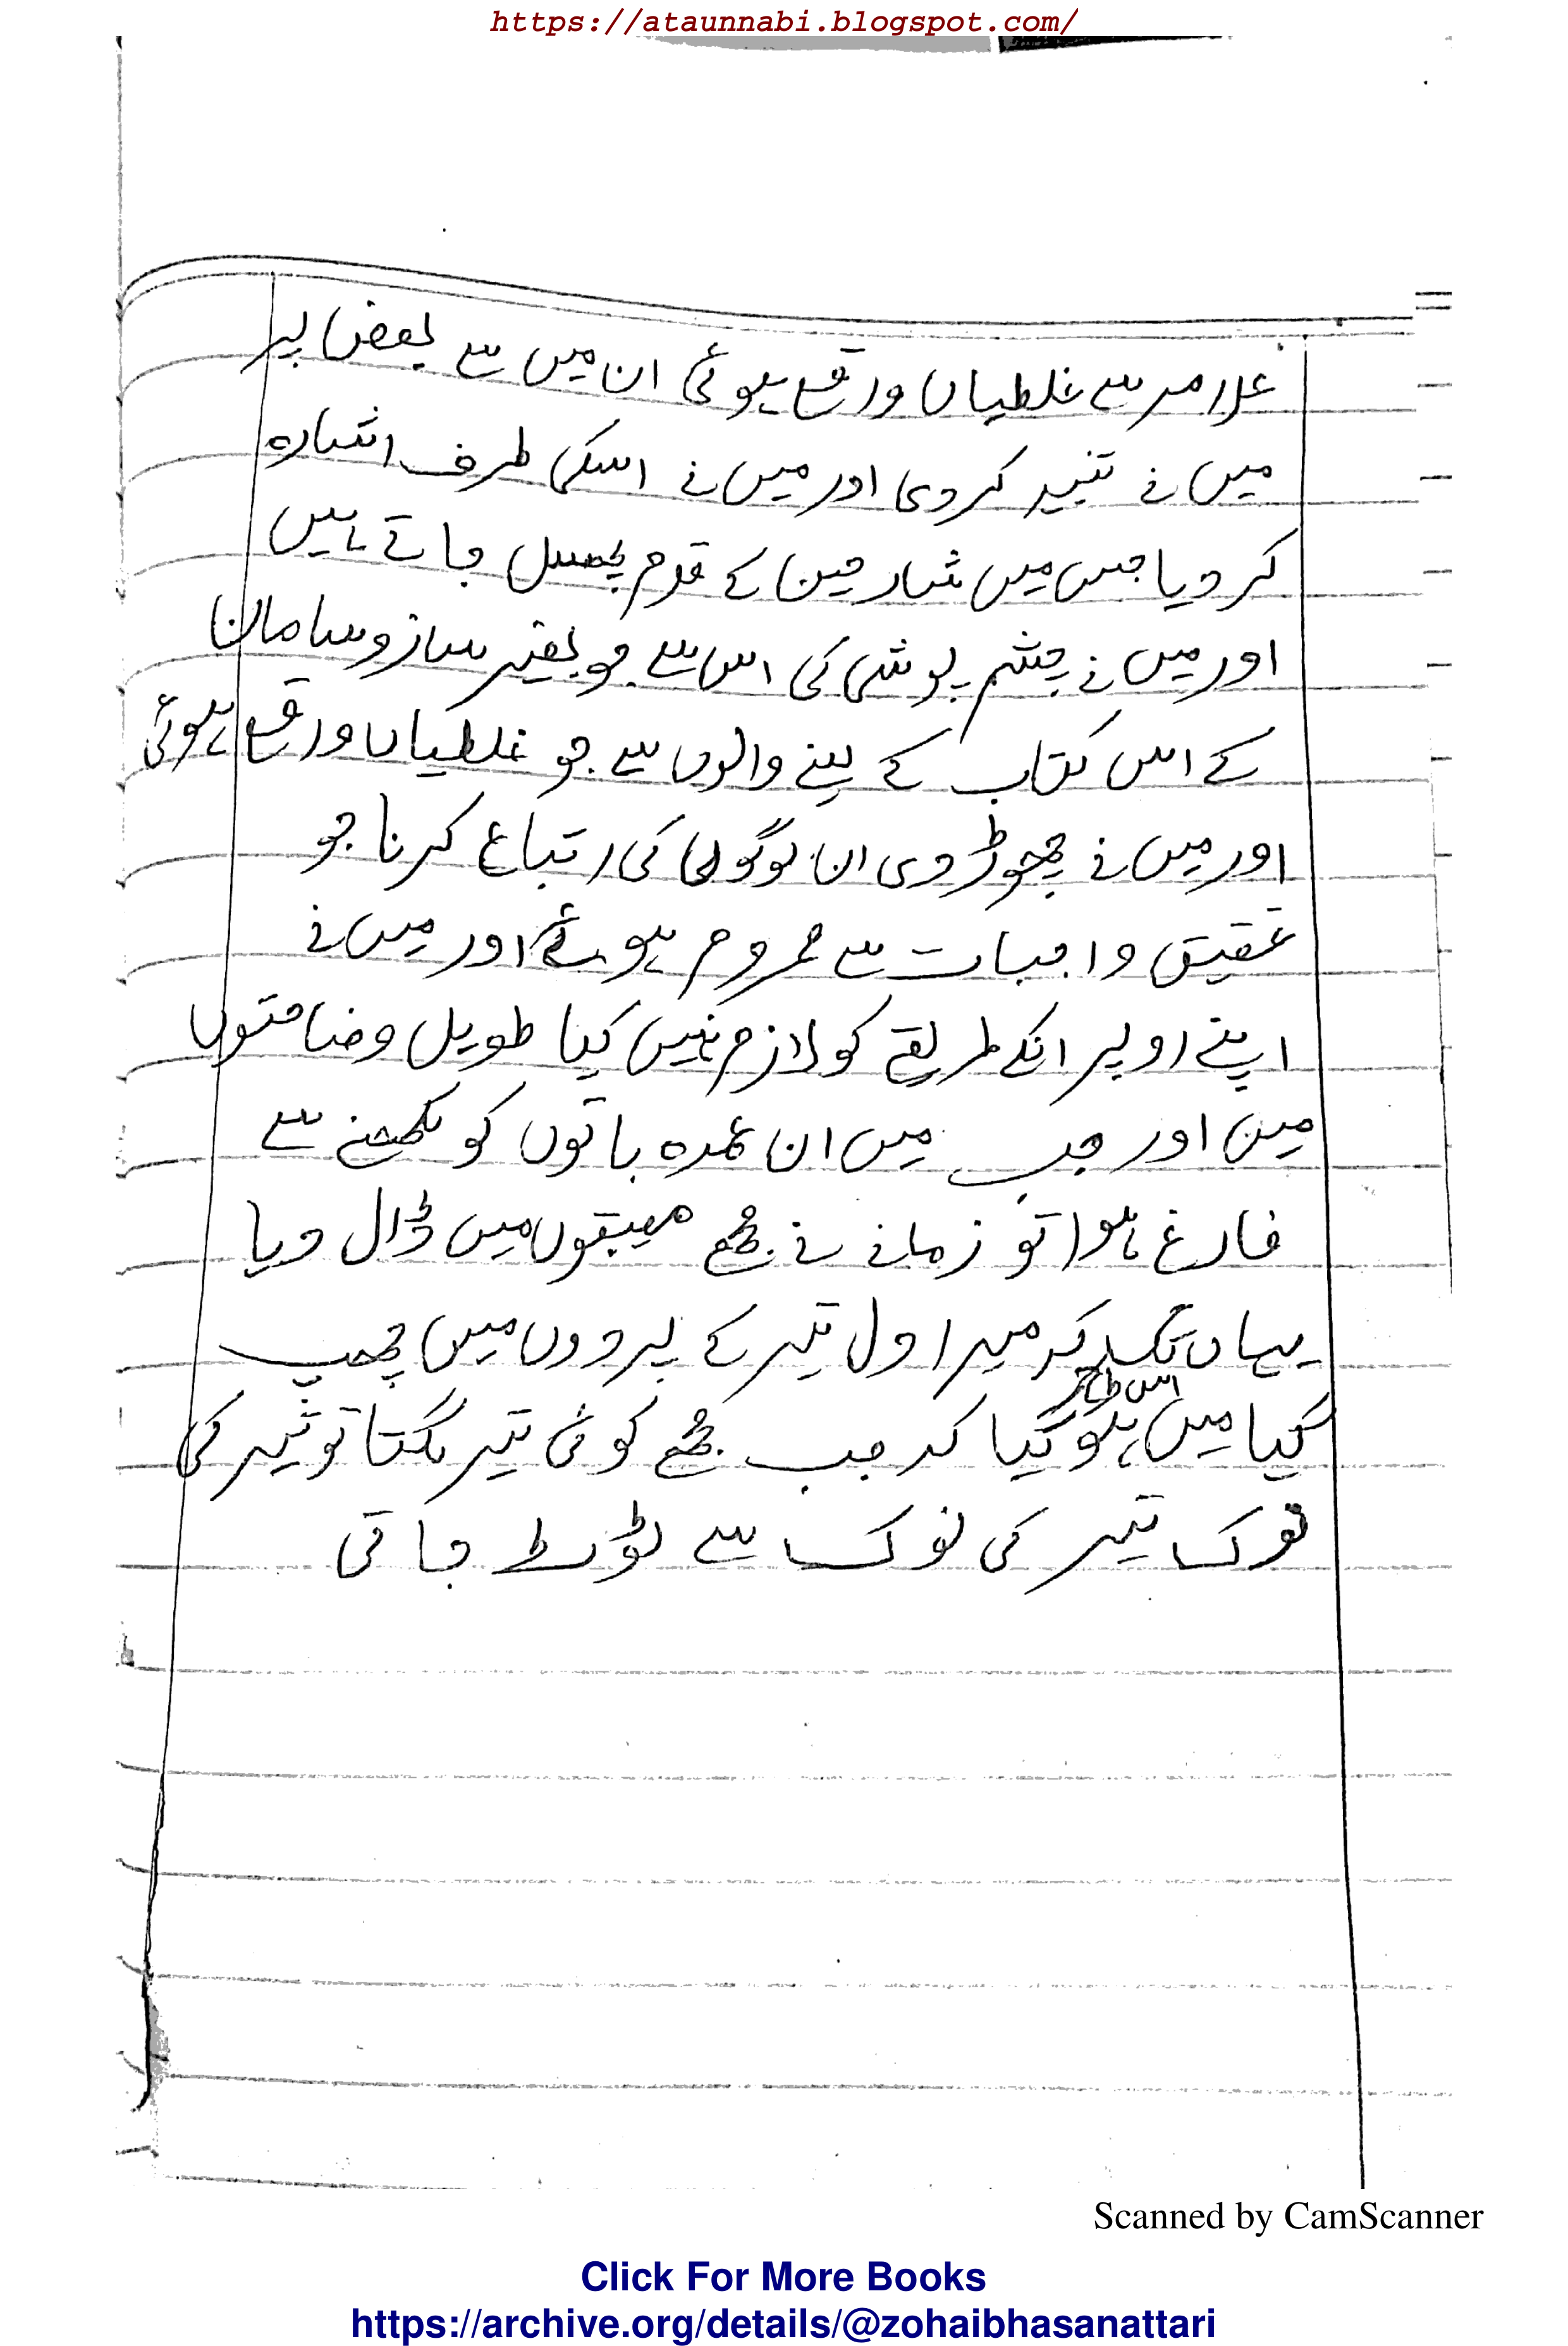 https://ataunnabi.blogspot.com/
علامہ سے غلطیاں واقع ہوئی ان میں سے بعض پر
میں نے تنبیہ کردی اور میں نے اسکی طرف اشارہ
کردیا جس میں شارحین کے قدم پھسل جاتے ہیں
اور میں نے چشم پوشی کی اس سے جو بغیر سازوسامان
کے اس کتاب کے لینے والوں سے جو غلطیاں واقع ہوئی
اور میں نے چھوڑ دی ان لوگوں کی اتباع کرنا جو
تحقیق واجبات سے محروم ہوئے اور میں نے
اپنے اوپر انکے طریقے کو لازم نہیں کیا طویل وضاحتوں
میں اور جب میں ان عمدہ باتوں کو لکھنے سے
فارغ ہوا تو زمانے نے مجھے مصیبتوں میں ڈال دیا
یہاں تک کہ میرا دل تیر کے پردوں میں چھپ
گیا میں اس طرح ہوگیا کہ جب مجھے کوئی تیر لگتا تو تیر کی
نوک تیر کی نوک سے ٹوٹ جاتی
Scanned by CamScanner
Click For More Books
https://archive.org/details/@zohaibhasanattari